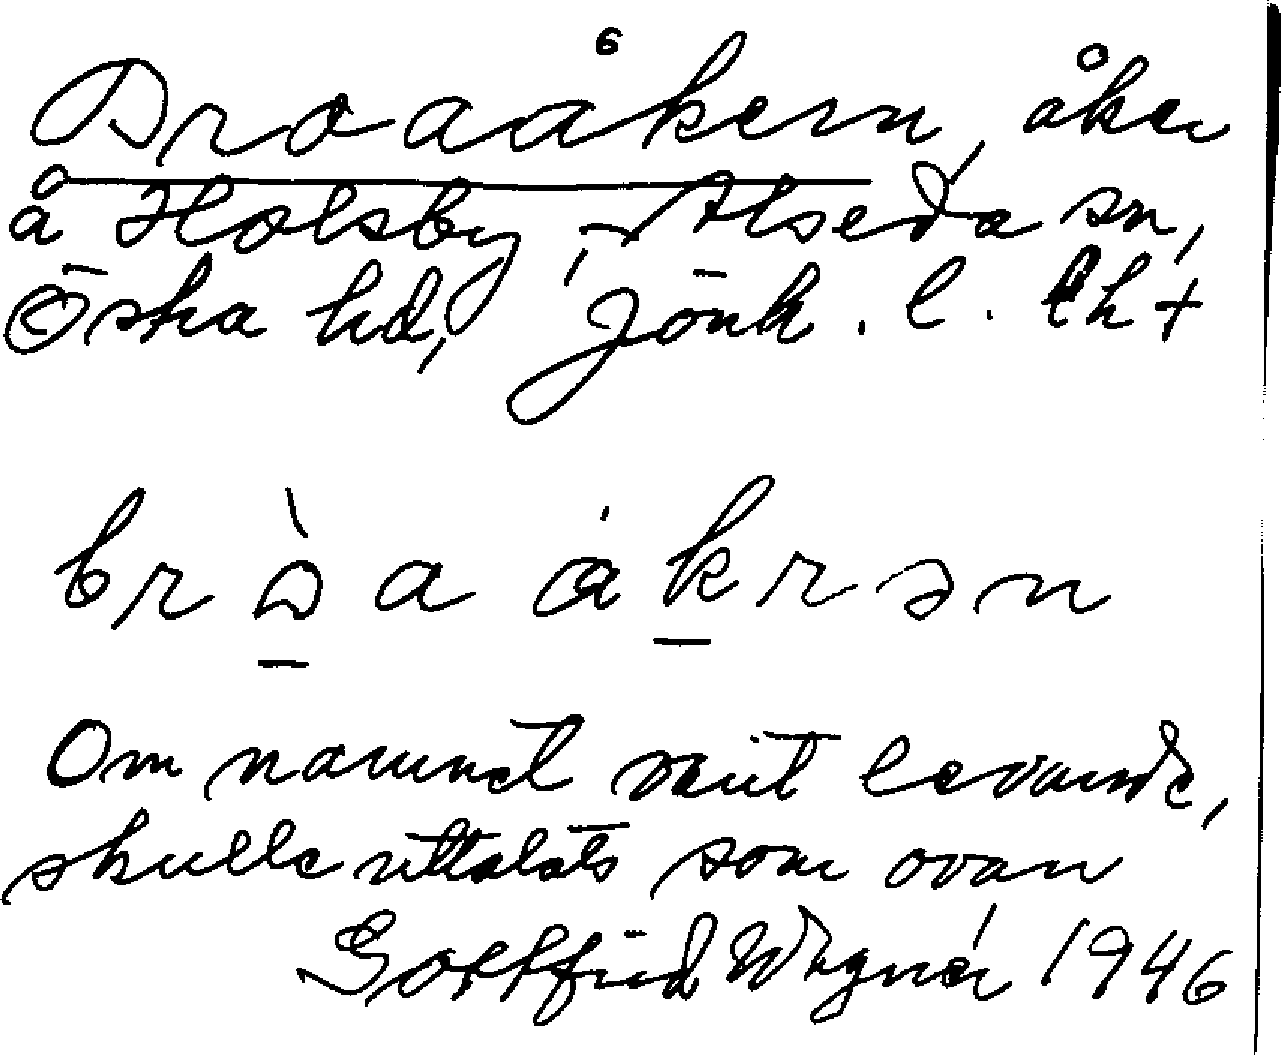 6
Broaåkern, åker
å Holsby, Alseda sn,
Östra hd, Jönk. l.
bròa åkrən
Om namnet varit levande,
skulle uttalats som ovan
Gottfrid Wagnér 1946